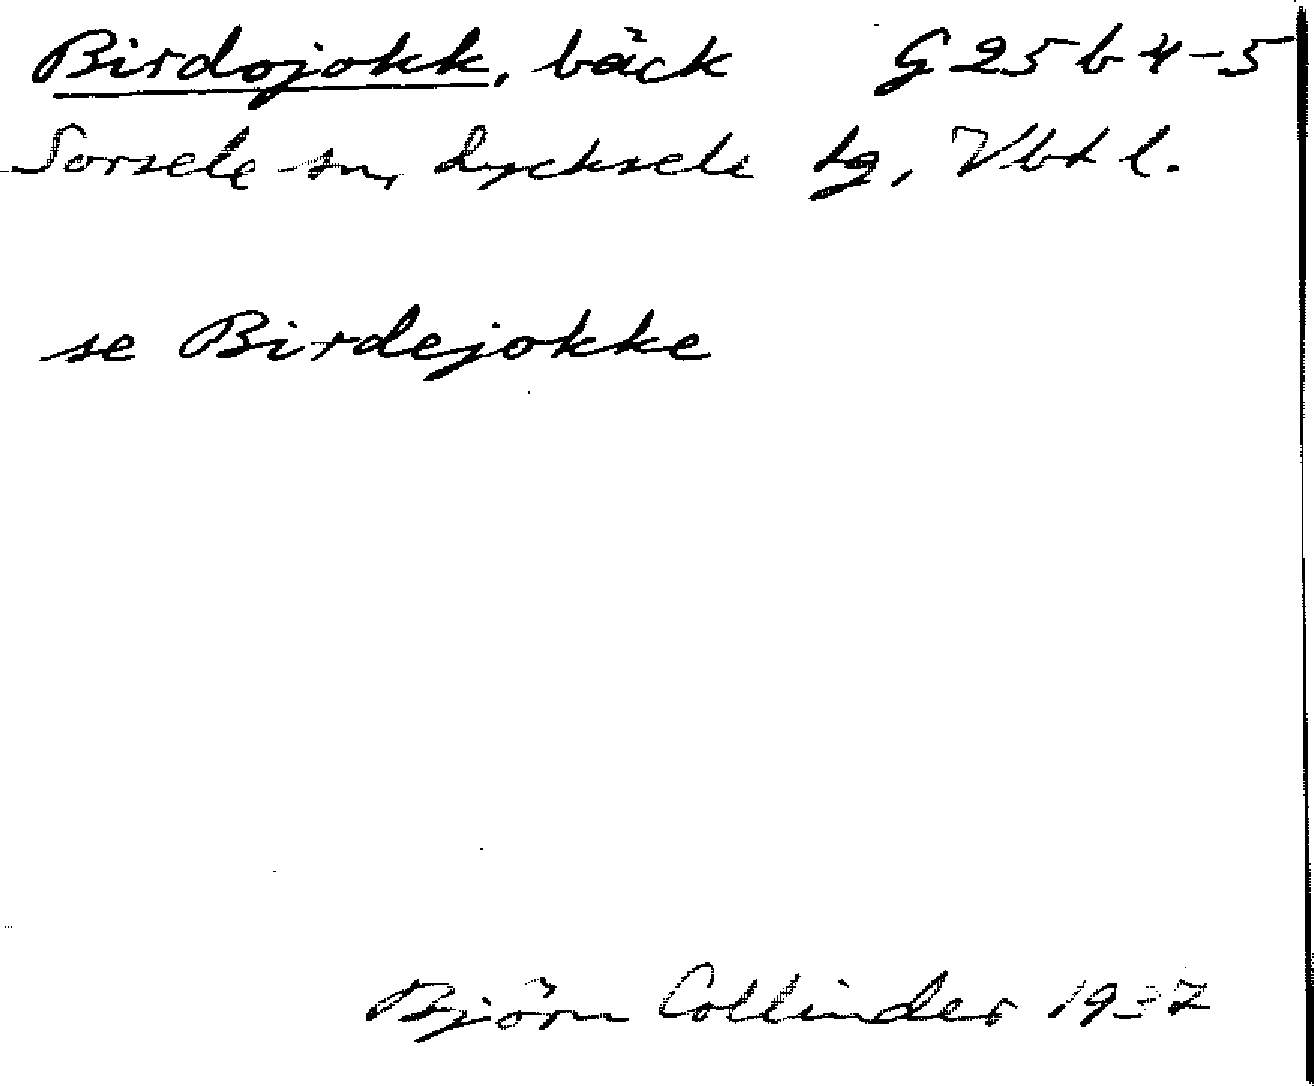 Birdojokk, bäck G 25 b 4-5
Sorsele sn, Lycksele tg, Vbtl.
se Birdejokke
Björn Collinder 1937